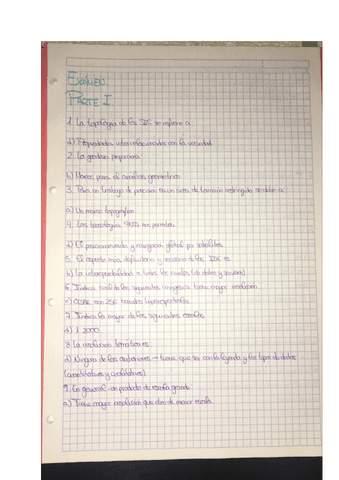 EXAMEN
PARTE I
1. La topología de los IG se refiere a:
d) Propiedades interrelacionadas con la vecindad
2. La geodesia proporciona:
b) Marco para el análisis geométrico
3. Para un trabajo de precisión en un área de tamaño restringido se debe a:
a) Un marco topográfico
4. Las tecnologías GNSS nos permiten
d) El posicionamiento y navegación global por satélites
5. El aspecto más y necesario de los IDE es
b) La interoperabilidad a todos los niveles (de datos y servicios)
6. Indica cuál de las siguientes imágenes tiene mayor resolución
c) con 256 bandas hiperespectrales
7. Indica la mayor de las siguientes escalas
d) 1:2000
8. La resolución temática es:
d) Ninguna de las anteriores → tiene que ver con la leyenda y los tipos de datos
(cuantitativos y cualitativos)
9. En general, un producto de escala grande:
a) Tiene mayor resolución que otro de menor escala